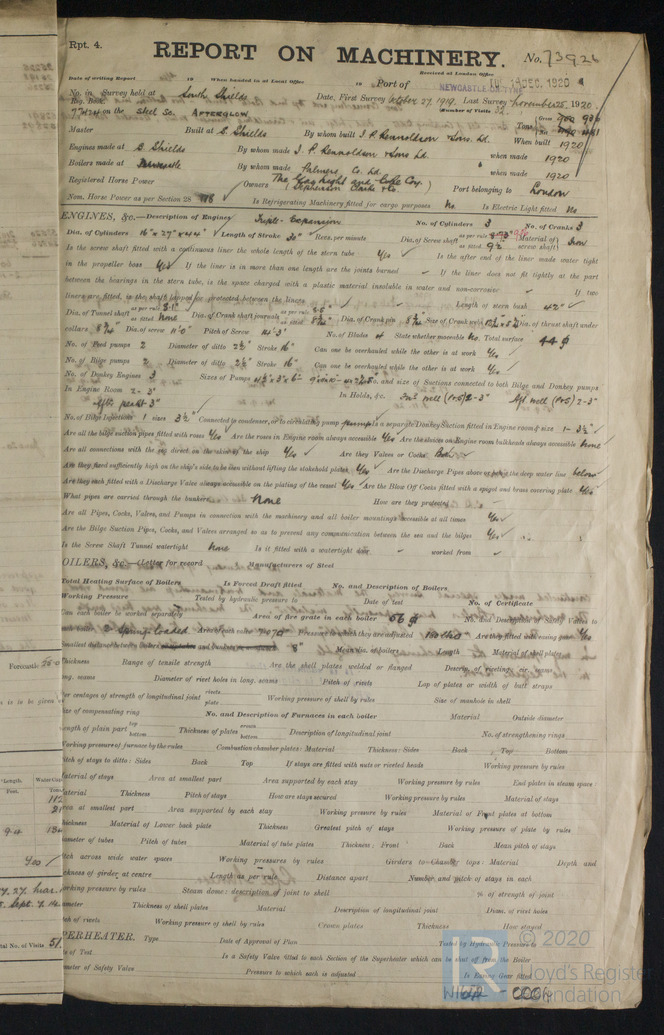 Rpt. 4.
REPORT ON MACHINERY.
No. 73926
Date of writing Report 19 When handed in at Local Office 19 Port of
Received at London Office
16 DEC. 1920
NEWCASTLE-ON-TYNE
No. in Survey held at South Shields Date, First Survey October 27, 1919. Last Survey November 25, 1920
Reg. Book. Number of Visits
on the Steel Sc. AFTERGLOW Tons Gross Net
Master Built at S. Shields By whom built J. P. Rennoldson & Sons Ld. When built 1920
Engines made at S. Shields By whom made J. P. Rennoldson & Sons Ld when made 1920
Boilers made at Newcastle By whom made Palmers Co. Ld. when made 1920
Registered Horse Power Owners The Gas Light and Coke Coy. Port belonging to London
(Stephenson Clarke &Co)
Nom. Horse Power as per Section 28 118 Is Refrigerating Machinery fitted for cargo purposes No. Is Electric Light fitted No
ENGINES, &c.—Description of Engines Triple Expansion No. of Cylinders 3 No. of Cranks 3
Dia. of Cylinders 16" x 27" x 44" Length of Stroke 30" Revs. per minute Dia. of Screw shaft as per rule as fitted 9½ Material of screw shaft Iron
Is the screw shaft fitted with a continuous liner the whole length of the stern tube Yes Is the after end of the liner made water tight
in the propeller boss Yes If the liner is in more than one length are the joints burned If the liner does not fit tightly at the part
between the bearings in the stern tube, is the space charged with a plastic material insoluble in water and non-corrosive If two
liners are fitted, is the shaft lapped or protected between the liners Length of stern bush 42"
Dia. of Tunnel shaft as per rule as fitted None Dia. of Crank shaft journals as per rule as fitted 8¾" Dia. of Crank pin 8¾" Size of Crank webs Dia. of thrust shaft under
collars 8¾" Dia. of screw 11'6" Pitch of Screw 14'3" No. of Blades 4 State whether moveable No. Total surface 44
No. of Feed pumps 2 Diameter of ditto 2½" Stroke 16" Can one be overhauled while the other is at work Yes
No. of Bilge pumps 2 Diameter of ditto 2½" Stroke 16" Can one be overhauled while the other is at work Yes
No. of Donkey Engines 3 Sizes of Pumps No. and size of Suctions connected to both Bilge and Donkey pumps
In Engine Room 2-3" In Holds, &c. well (P&S) 2-3" Aft well (P&S) 2-3"
Aft peak 1-3"
No. of Bilge Injections 1 sizes 3½" Connected to condenser, or to circulating pump pump Is a separate Donkey Suction fitted in Engine room & size 1-3½"
Are all the bilge suction pipes fitted with roses Yes Are the roses in Engine room always accessible Yes Are the sluices on Engine room bulkheads always accessible None
Are all connections with the sea direct on the skin of the ship Yes Are they Valves or Cocks Both
Are they fixed sufficiently high on the ship's side to be seen without lifting the stokehold plates Yes Are the Discharge Pipes above or below the deep water line below
Are they each fitted with a Discharge Valve always accessible on the plating of the vessel Yes Are the Blow Off Cocks fitted with a spigot and brass covering plate Yes
What pipes are carried through the bunkers None How are they protected
Are all Pipes, Cocks, Valves, and Pumps in connection with the machinery and all boiler mountings accessible at all times Yes
Are the Bilge Suction Pipes, Cocks, and Valves arranged so as to prevent any communication between the sea and the bilges Yes
Is the Screw Shaft Tunnel watertight None Is it fitted with a watertight door worked from
OILERS, &c.—(Letter for record Manufacturers of Steel
Total Heating Surface of Boilers Is Forced Draft fitted No. and Description of Boilers
Working Pressure Tested by hydraulic pressure to Date of test No. of Certificate
Can each boiler be worked separately Area of fire grate in each boiler 56 No. and Description of Safety Valves to
each boiler 2 Spring loaded Area of each valve 7.07 Pressure to which they are adjusted Are they fitted with easing gear Yes
Smallest distance between boilers 8" Mean dia. of boilers Length Material of shell plates
Thickness Range of tensile strength Are the shell plates welded or flanged Descrip. of riveting: cir. seams
long. seams Diameter of rivet holes in long. seams Pitch of rivets Lap of plates or width of butt straps
Per centages of strength of longitudinal joint rivets plate Working pressure of shell by rules Size of manhole in shell
Size of compensating ring No. and Description of Furnaces in each boiler Material Outside diameter
Length of plain part top bottom Thickness of plates crown bottom Description of longitudinal joint No. of strengthening rings
Working pressure of furnace by the rules Combustion chamber plates: Material Thickness: Sides Back Top Bottom
Pitch of stays to ditto: Sides Back Top If stays are fitted with nuts or riveted heads Working pressure by rules
Material of stays Area at smallest part Area supported by each stay Working pressure by rules End plates in steam space:
Material Thickness Pitch of stays How are stays secured Working pressure by rules Material of stays
Area at smallest part Area supported by each stay Working pressure by rules Material of Front plates at bottom
Thickness Material of Lower back plate Thickness Greatest pitch of stays Working pressure of plate by rules
Diameter of tubes Pitch of tubes Material of tube plates Thickness: Front Back Mean pitch of stays
Pitch across wide water spaces Working pressures by rules Girders to Chamber tops: Material Depth and
thickness of girder at centre Length as per rule Distance apart Number and pitch of stays in each
Working pressure by rules Steam dome: description of joint to shell % of strength of joint
Diameter Thickness of shell plates Material Description of longitudinal joint Diam. of rivet holes
Pitch of rivets Working pressure of shell by rules Crown plates Thickness How stayed
PERHEATER. Type Date of Approval of Plan Tested by Hydraulic Pressure to
Date of Test Is a Safety Valve fitted to each Section of the Superheater which can be shut off from the Boiler
Diameter of Safety Valve Pressure to which each is adjusted Is Easing Gear fitted
© 2020
Lloyd's Register
Foundation